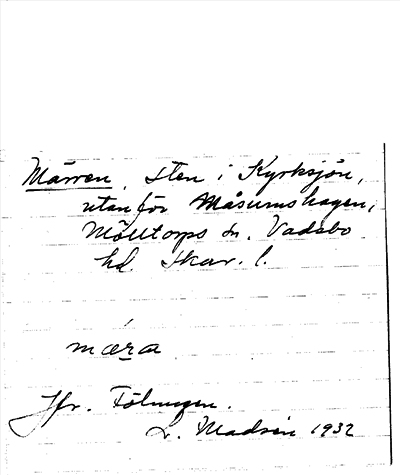 Märren, sten i Kyrksjön,
utanför Måsumshagen,
Mölltorps sn. Vadsbo
hd. Skar. l.
mæra
Jfr. Fölungen.
L. Madsén 1932